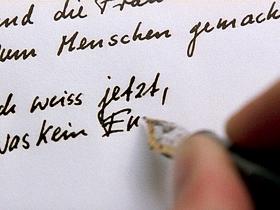 und die Frau
zum Menschen gemach
ch weiss jetzt,
was kein En